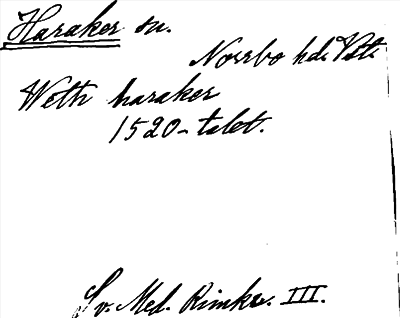 Haraker sn.
Norrbo hd. Vstm.
Weth haraker
1520-talet.
Sv. Med. Rimkr. III.